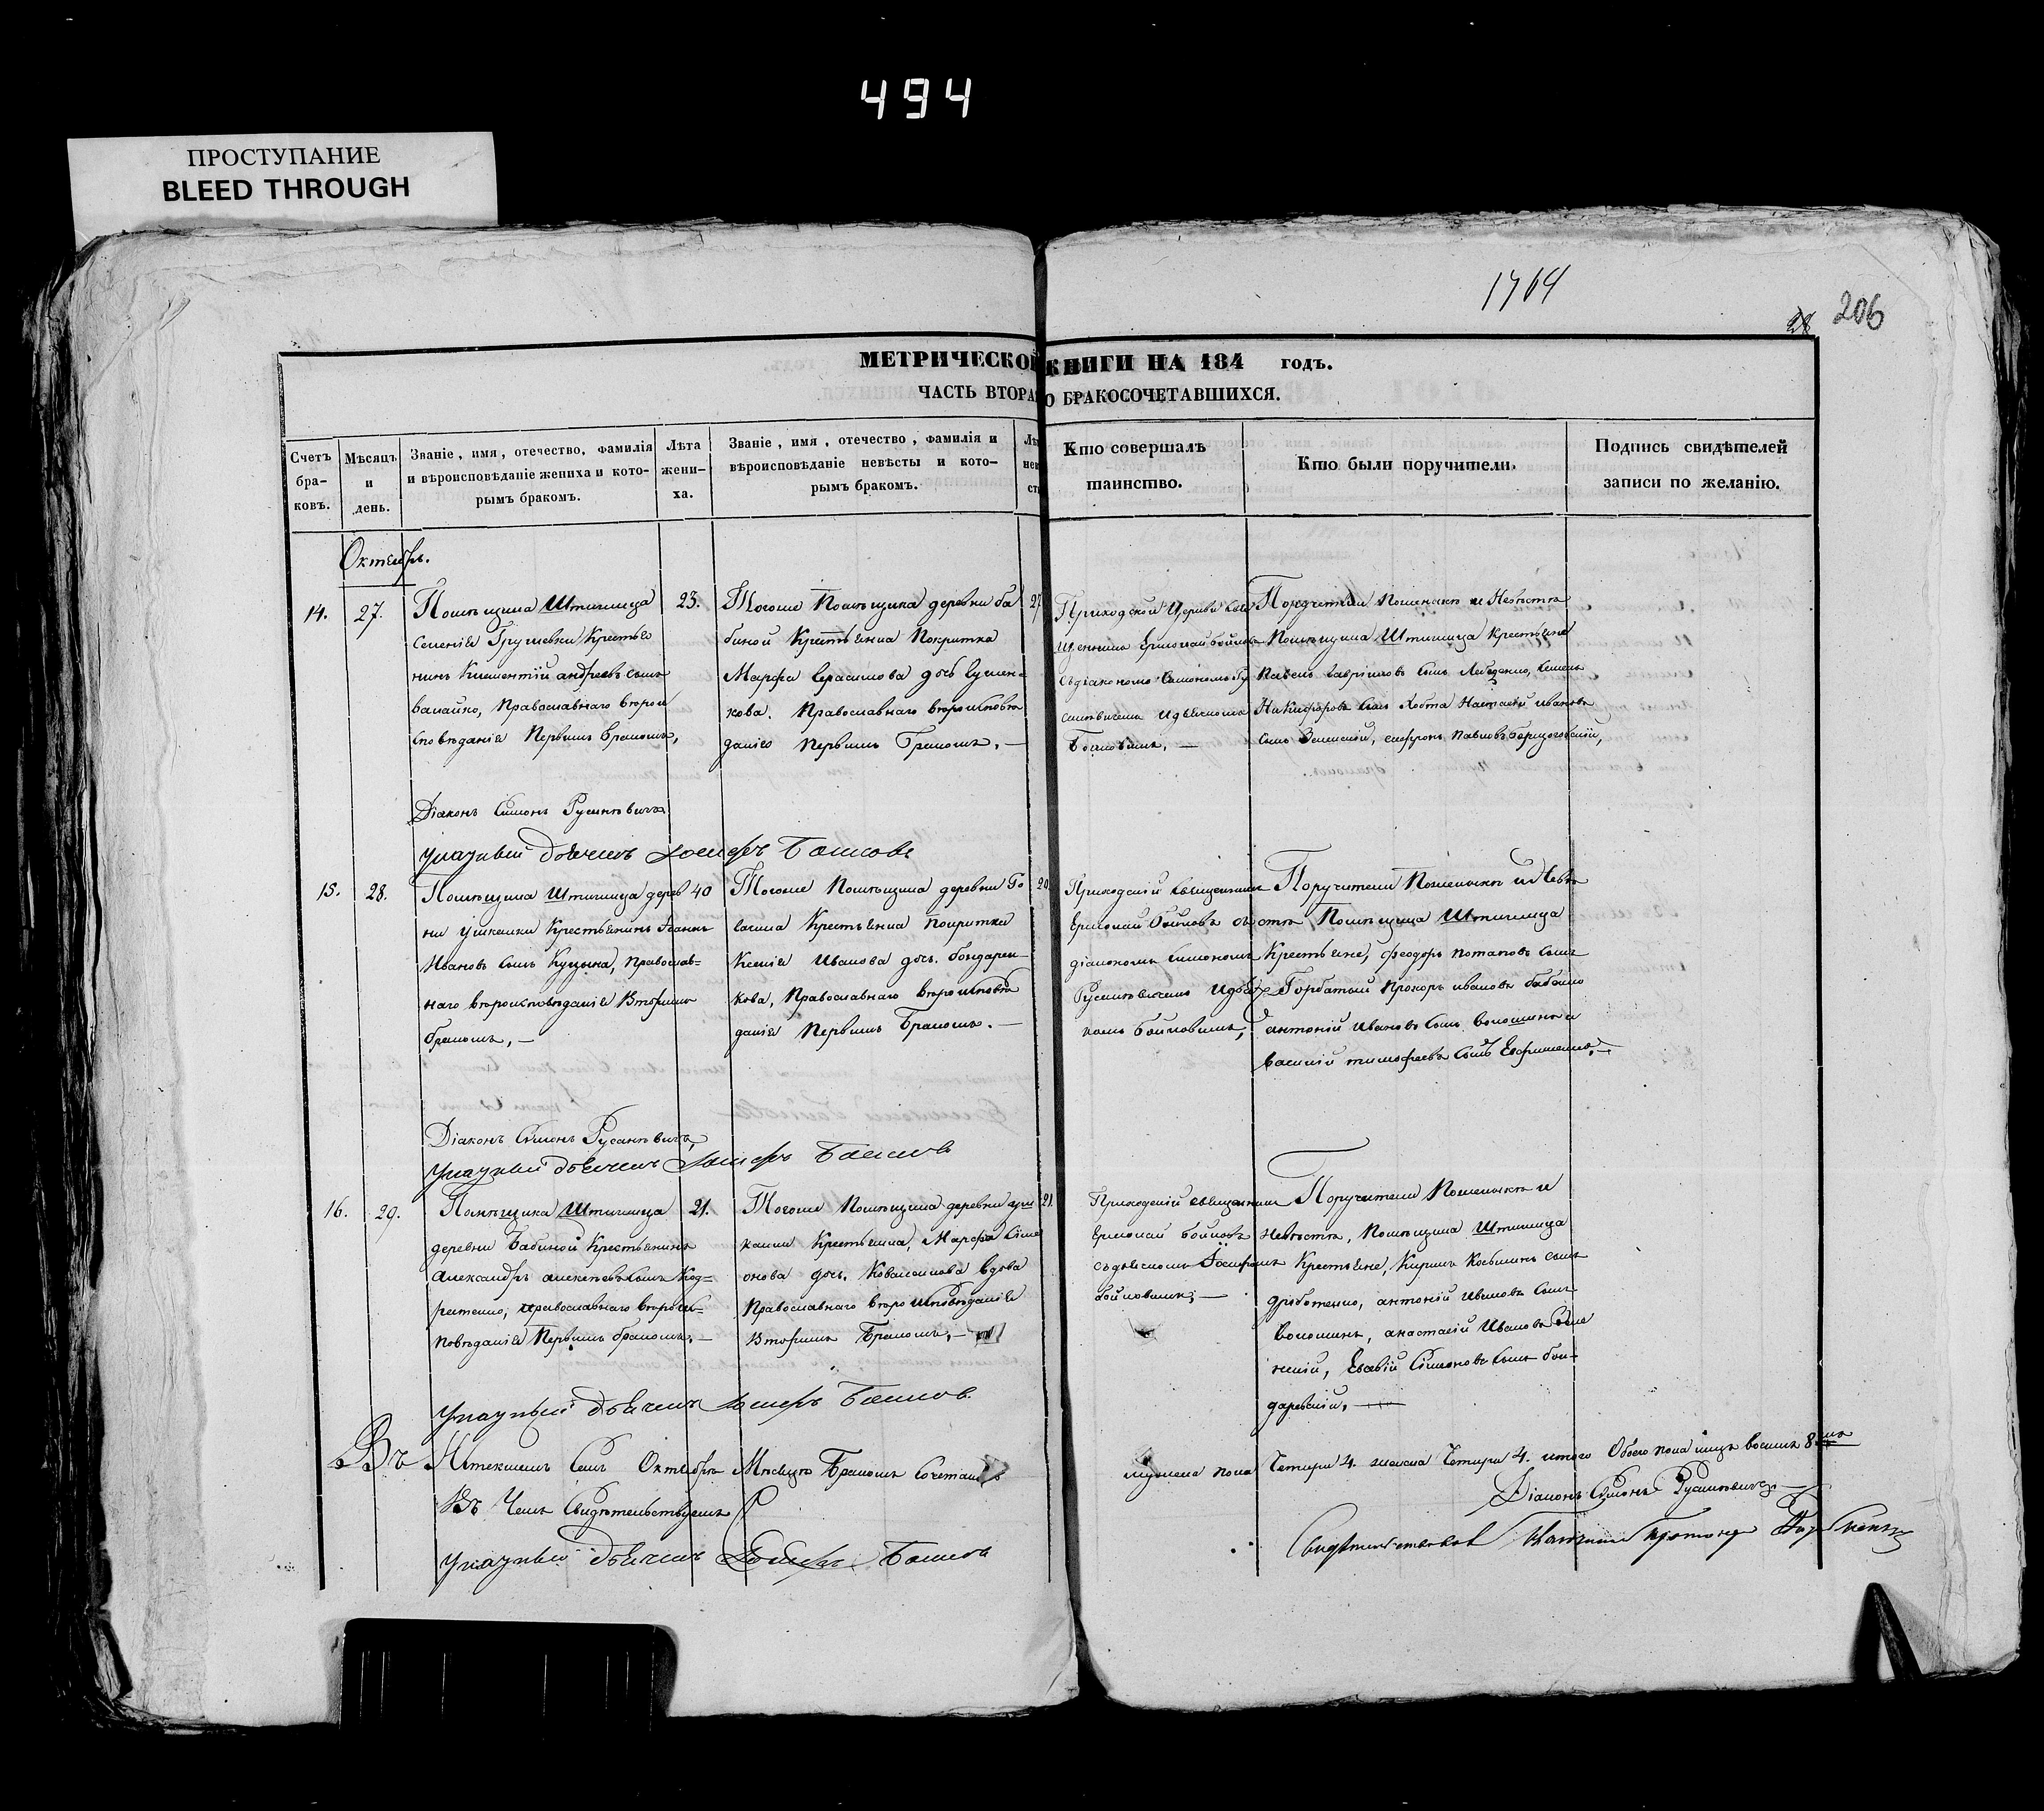 494
ПРОСТУПАНИЕ
BLEED THROUGH
1764
28 206
МЕТРИЧЕСКОЙ КНИГИ НА 184 годъ.
ЧАСТЬ ВТОРАЯ О БРАКОСОЧЕТАВШИХСЯ.
Счетъ бра-
ковъ.
Мѣсяцъ
и
день.
Званіе, имя, отечество, фамилія
и вѣроисповѣданіе жениха и кото-
рымъ бракомъ.
Лѣта
жени-
ха.
Званіе, имя, отечество, фамилія и
вѣроисповѣданіе невѣсты и кото-
рымъ бракомъ.
Кто совершалъ
таинство.
Кто были поручители.
Подпись свидѣтелей
записи по желанію.
Октябрь.
14.
27.
Помѣщика Штиглица
селенія Грушевки Крестья
нинъ Климентій андреевъ сынъ
Православнаго вѣрои
сповѣданія Первымъ бракомъ,
23.
Тогоже Помѣщика деревни ба
биной Крестьянка Покритка
Марфа Герасимова дочь
кова. Православнаго вѣроисповѣ
данія Первымъ Бракомъ. —
27
Приходской Церкви Свя
щенникъ Ермолай Бойковъ
съ діакономъ Симономъ Ру
Бойковымъ. —
Поручители По женихѣ и Невѣстѣ
Помѣщика Штиглица Крестьяне
Павелъ Гавріиловъ сынъ Лебеденко, Семенъ
Никифоровъ сынъ Хобта Настасій ивановъ
сынъ Зелинскій, Павловъ
Діаконъ Симонъ Русановичъ
Указный дьячекъ Іосифъ Бойковъ
15.
28.
Помѣщика Штиглица дерев
ни ушкалки Крестьянинъ Іоаннъ
Ивановъ сынъ Куцына, Православ-
наго вѣроисповѣданія Вторымъ
бракомъ, —
40
Тогоже Помѣщика деревни Бо
Крестьянка Покритка
Ксенія Иванова дочь. бондарен-
кова, Православнаго вѣроисповѣ
данія Первымъ Бракомъ. —
20
Приходскій священникъ
Ермолай Бойковъ съ
діакономъ Симономъ
Русановичемъ и дья
комъ Бойковымъ,
Поручители По женихѣ и Невѣ
стѣ Помѣщика Штиглица
Крестьяне, феодоръ потаповъ сынъ
Горбатый Прокоръ ивановъ бабенко
антоній Ивановъ сынъ Волошинъ и
Василій тимофеевъ сынъ Ефименко. —
Діаконъ Симонъ Русановичъ,
Указный дьячекъ Іосифъ Бойковъ
16.
29.
Помѣщика Штиглица
деревни Бабиной Крестьянинъ
Александръ алексѣевъ сынъ
православнаго вѣроис-
повѣданія Первымъ бракомъ. —
21.
Тогоже Помѣщика деревни уш
калки Крестьянка, Марфа Сим
онова дочь. Ковалькова Вдова
Православнаго вѣроисповѣданія
Вторымъ Бракомъ, —
21.
Приходскій священникъ
Ермолай Бойковъ
съ дьячкомъ Іосифомъ
Бойковымъ; —
Поручители По женихѣ и
Невѣстѣ, Помѣщика Штиглица
Крестьяне, Кирилъ Косьминъ сынъ
дроботенко, антоній Ивановъ сынъ
Волошинъ, анастасій Ивановъ Зели
нскій, Евсевій Симоновъ сынъ бон-
даревскій. —
Указный дьячекъ Іосифъ Бойковъ
Въ Истекшемъ Семъ Октябрѣ Мѣсяцѣ Бракомъ Сочетались
мужеска пола Четыри 4. женска Четыри 4. итого Обоего пола лицъ восемь 8.
Въ Чемъ Свидѣтельствуемъ
Діаконъ Симонъ Русановичъ. —
Указный дьячекъ Іосифъ Бойковъ
Свидѣтельствовалъ